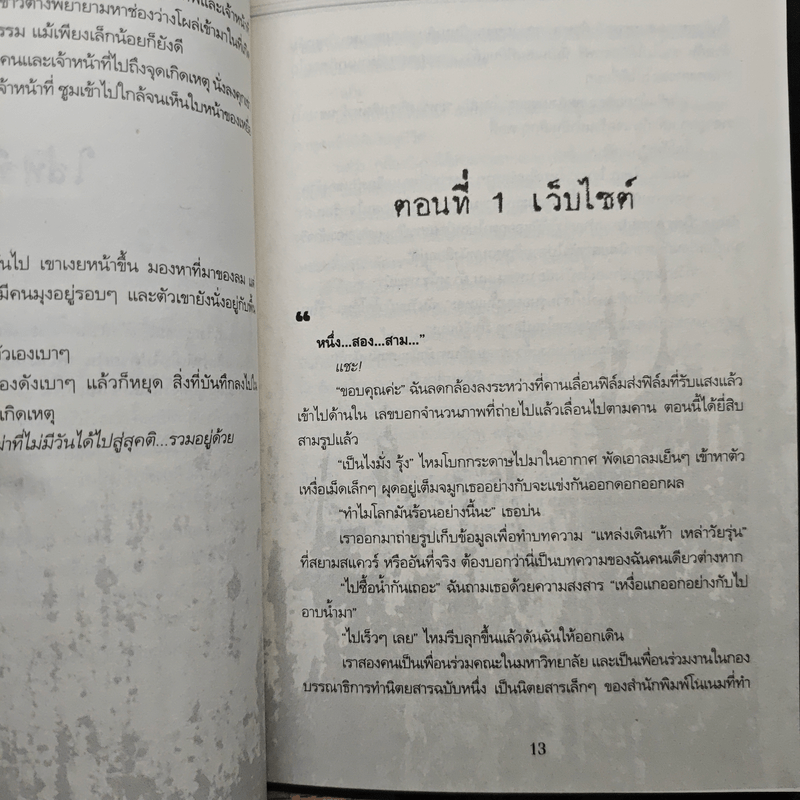 ชาวต่างพยายามหาช่องว่างโผล่เข้ามาในที่เกิด
รรม แม้เพียงเล็กน้อยก็ยังดี
คนและเจ้าหน้าที่ไปถึงจุดเกิดเหตุ
จ้าหน้าที่ ซูมเข้าไปใกล้จนเห็นใบหน้าของเหยื่อ
นไป เขาเงยหน้าขึ้น มองหาที่มาของลม แต่
มีคนมุงอยู่รอบๆ และตัวเขายังนั่งอยู่กับพื้น
ตัวเองเบาๆ
องดังเบาๆ แล้วก็หยุด สิ่งที่บันทึกลงไปใน
เกิดเหตุ
ที่ไม่มีวันได้ไปสู่สุคติ...รวมอยู่ด้วย
ตอนที่ 1 เว็บไซต์
“
หนึ่ง...สอง...สาม...”
แชะ!
“ขอบคุณค่ะ” ฉันลดกล้องลงระหว่างที่คานเลื่อนฟิล์มส่งฟิล์มที่รับแสงแล้ว
เข้าไปด้านใน เลขบอกจำนวนภาพที่ถ่ายไปแล้วเลื่อนไปตามคาน ตอนนี้ได้ยี่สิบ
สามรูปแล้ว
“เป็นไงมั่ง รุ้ง” ไหมโบกกระดาษไปมาในอากาศ พัดเอาลมเย็นๆ เข้าหาตัว
เหงื่อเม็ดเล็กๆ ผุดอยู่เต็มจมูกเธออย่างกับจะแข่งกันออกดอกออกผล
“ทำไมโลกมันร้อนอย่างนี้นะ” เธอบ่น
เราออกมาถ่ายรูปเก็บข้อมูลเพื่อทำบทความ “แหล่งเดินเท้า เหล่าวัยรุ่น”
ที่สยามสแควร์ หรืออันที่จริง ต้องบอกว่านี่เป็นบทความของฉันคนเดียวต่างหาก
“ไปซื้อน้ำกันเถอะ” ฉันถามเธอด้วยความสงสาร “เหงื่อแกออกอย่างกับไป
อาบน้ำมา”
“ไปเร็วๆ เลย” ไหมรีบลุกขึ้นแล้วดันฉันให้ออกเดิน
เราสองคนเป็นเพื่อนร่วมคณะในมหาวิทยาลัย และเป็นเพื่อนร่วมงานในกอง
บรรณาธิการทำนิตยสารฉบับหนึ่ง เป็นนิตยสารเล็กๆ ของสำนักพิมพ์โนเนมที่ทำ
13